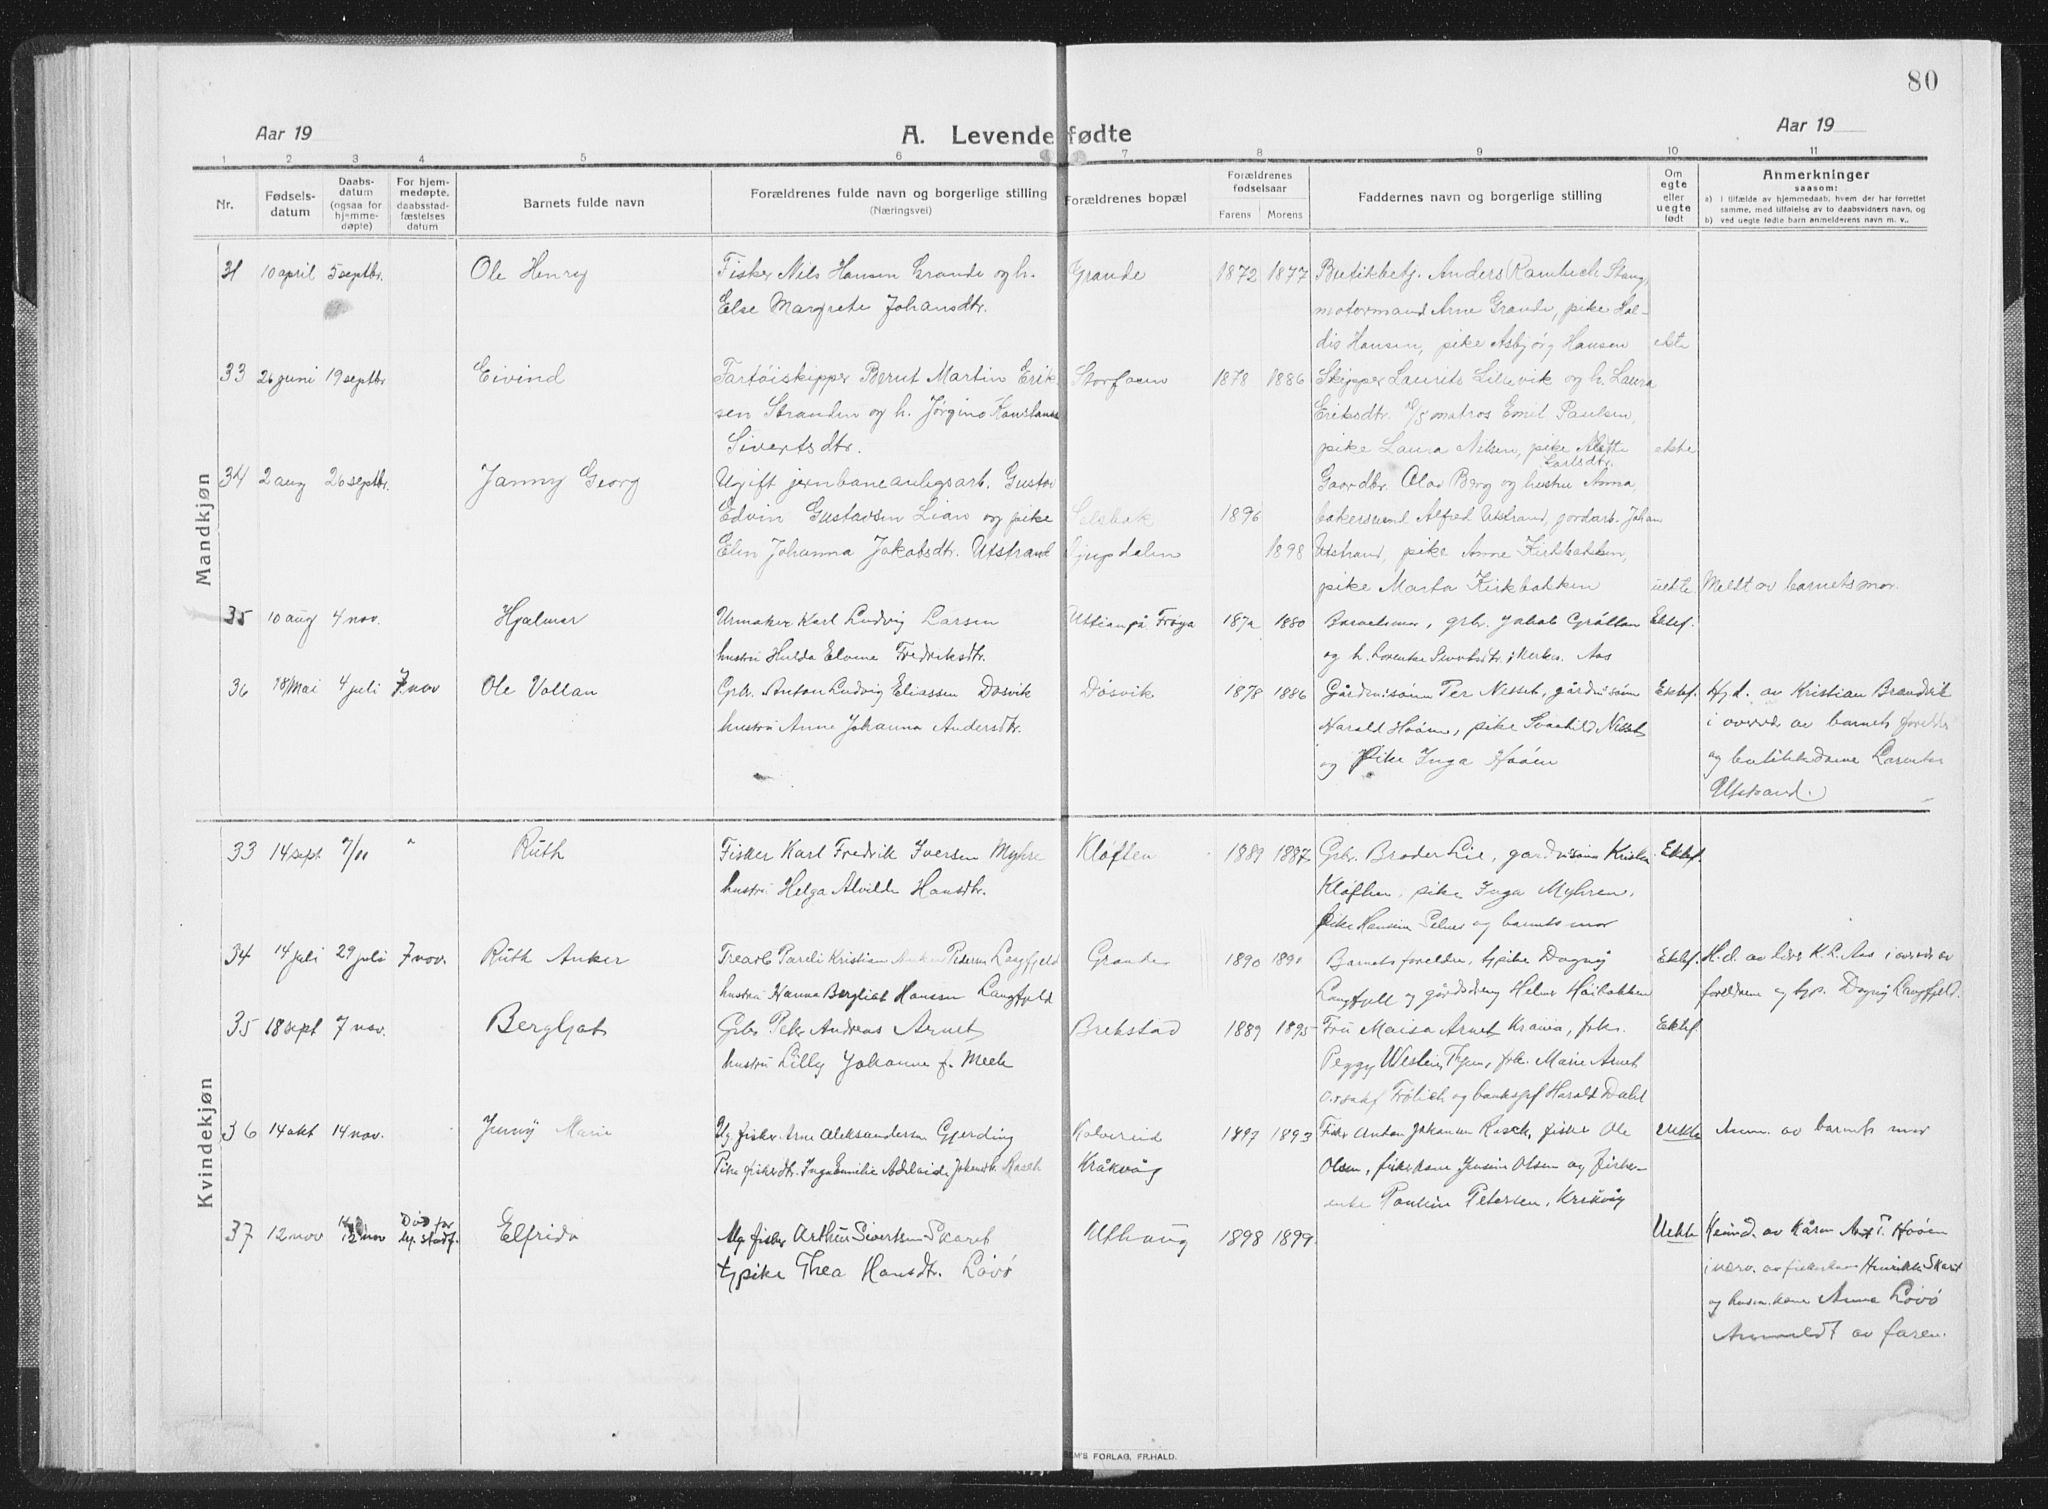 80
Aar 19
A. Levendefødte
Aar 19
1 2 3 4 5 6 7 8 9 10 11
Nr.
Fødsels-
datum
Daabs-
datum
(ogsaa for
hjemme-
døpte)
For hjem-
medøpte,
daabsstad-
fæstelses
datum
Barnets fulde navn
Forældrenes fulde navn og borgerlige stilling
(Næringsvei)
Forældrenes bopæl
Forældrenes
fødselsaar
Farens Morens
Faddernes navn og borgerlige stilling
Om
egte
eller
uegte
født
Anmerkninger
saasom:
a) I tilfælde av hjemmedaab, hvem der har forrettet
samme, med tilføielse av to daabsvidners navn, og
b) ved uegte fødte barn anmelderens navn m. v..
Mandkjøn
31 10 april 5 septbr. Ole Henry Fisker Nils Hansen Grande og h. Grande 1872 1877 Butikbetj. Anders Rambech Stang,
Else Margrete Johansdtr. motormand Arne Grande, pike Hal-
dis Hansen, pike Asbjørg Hansen ekte
33 26 juni 19 septbr Eivind Fartøiskipper Bernt Martin Erik- Storfosen 1878 1886 Skipper Laurits Lillevik og h. Laura
sen Stranden og h. Jørgine Konstanse Eriksdtr. matros Emil Paulsen,
Sivertsdtr. pike Laura Nilsen, pike Alette ekte
Karlsdtr.
34 2 aug 26 septbr. Janny Georg Ugift jernbaneanlegsarb. Gustav Gaardbr. Olav Berg og hustru Anna,
Edvin Gustavsen Lian og pike Selsbak 1896 bakersvend Alfred Utstrand, jordarb. Johan
Elin Johanna Jakobsdtr. Utstrand Djupdalen 1898 Utstrand, pike Anne Kirkbakken,
pike Marta Kirkbakken uekte Meldt av barnets mor.
35 10 aug 4 nov. Hjalmar Urmaker Karl Ludvig Larsen Uttian på Frøya 1872 1880 Barnets mor, grbr. Jakob Gråttan Ektef.
hustru Hulda Elvine Fredriksdtr. og h. Aas
36 18 Mai 4 juli 7 nov Ole Vollan Grbr. Anton Ludvig Eliassen Døsvik Døsvik 1878 1886 Gårdmisønn Per Nesset, gårdmisønn Ektef. Hjd. av Kristian Brandvik
hustru Anne Johanna Andersdtr. Harald Hoøen, pike Svanhild Nesset i overv. av barnets foreldre
og Pike Inga Hoøen og butikkdame Laurentse
Utstrand.
Kvindekjøn
33 14 sept 7/11 " Ruth Fisker Karl Fredrik Iversen Myhre Kløften 1889 1887 Grbr. Broder Lie, Ektef.
hustru Helga Alvilde Hansdtr. Kløften, pike Inga Myhren,
pike og barnets mor
34 14 juli 29 juli 7 nov. Ruth Anker Trearb Pareli Kristian Anker Pedersen Langfjeld Grande 1890 1891 Barnets foreldre, tj.pike Dagny Ektef. H.d. av lærer K.L. Aas i overv av
hustru Hanna Bergliot Hansen Langfjeld Langfjell og gårdsdreng Helmer Høibakken foreldrene og tjp. Dagny Langfjeld.
35 18 sept 7 nov. Bergljot Grbr Peter Andreas Arnet Brekstad 1889 1895 Fru Maisa Arnet Krania, frk. Ektef
hustru Lilly Johanne f. Meek Peggy Thjem, frk. Marie Arnet
Frølich og Harald Dahl
36 14 okt 14 nov. Jenny Marie Ug. fisker Arne Aleksandersen Gjerding Kolvereid 1897 1893 Fisker Anton Johansen Rasch, fisker Ole Uekte Anm. av barnets mor
Pike fiskerdtr. Inga Emilie Adelaide Johansdtr. Rasch Kråkvåg Olsen, fiskerkone Jensine Olsen og fisker-
enke Pauline Petersen, Kråkvåg
37 12 nov 12 nov Død før stadf. Elfrida Ug. fisker Arthur Sivertsen Skaret Uthaug 1898 1899 Uekte av Kåren Hoøen
tjpike Thea Hansdtr. Løvø i overv. av fiskerkone Henrikke Skaret
og kone Anna Løvø
Anmeldt av faren.
FORLAG, FR.HALD.